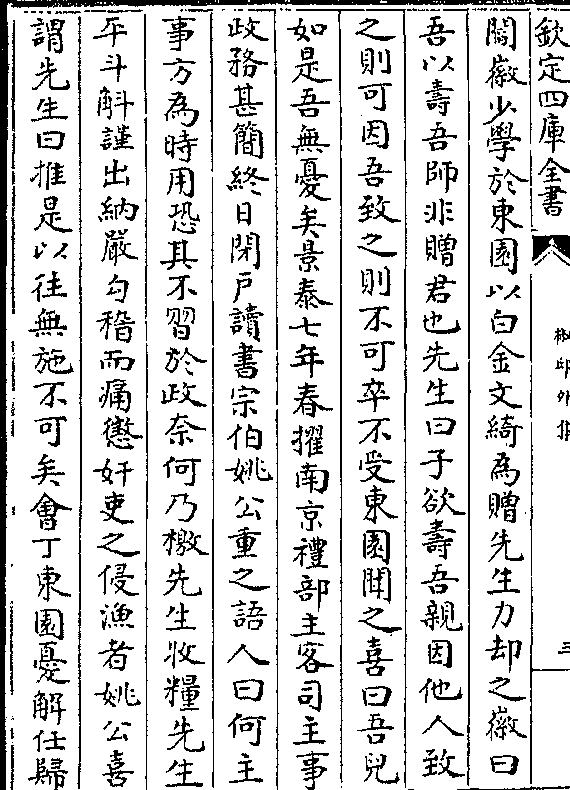 欽定四庫全書
椒邱外集
三
閽徽少學於東園以白金文綺為贈先生力却之徽曰
吾以壽吾師非贈君也先生曰子欲壽吾親因他人致
之則可因吾致之則不可卒不受東園聞之喜曰吾兒
如是吾無憂矣景泰七年春擢南京禮部主客司主事
政務甚簡終日閉戸讀書宗伯姚公重之語人曰何主
事方為時用恐其不習於政奈何乃檄先生收糧先生
平斗斛謹出納嚴勾稽而痛懲奸吏之侵漁者姚公喜
謂先生曰推是以往無施不可矣會丁東園憂解任歸